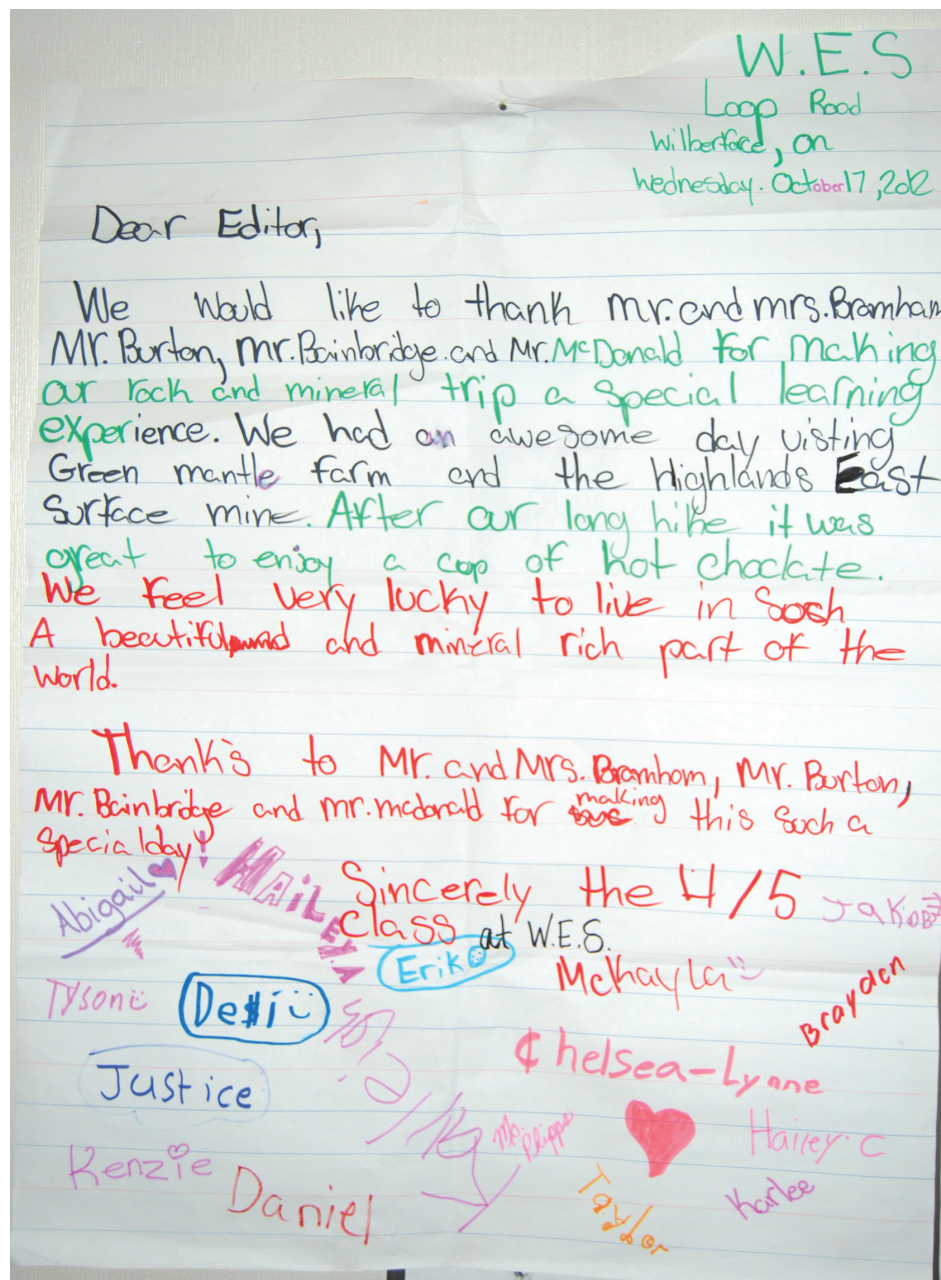 W.E.S
Loop Road
Wilberforce, on
Wednesday. October 17, 2012
Dear Editor,
We would like to thank Mr. and mrs. Bramham
Mr. Burton, Mr. Bainbridge and Mr. McDonald for making
our rock and mineral trip a special learning
experience. We had an awesome day visting
Green mantle farm and the Highlands East
Surface mine. After our long hike it was
great to enjoy a cop of hot choclate.
We feel very lucky to live in Such
A beautiful and mineral rich part of the
world.
Thank's to Mr. and Mrs. Bramham, Mr. Burton,
Mr. Bainbridge and mr. mcdonald for making this such a
special day!
Sincerely the 4/5
class at W.E.S.
Abigail
HAiLEY.A
JaKOB
Erik
McKayla
Brayden
Tyson
De$i
Chelsea-Lynne
Justice
Hailey. C
Kenzie
Karlee
Daniel
Taylor